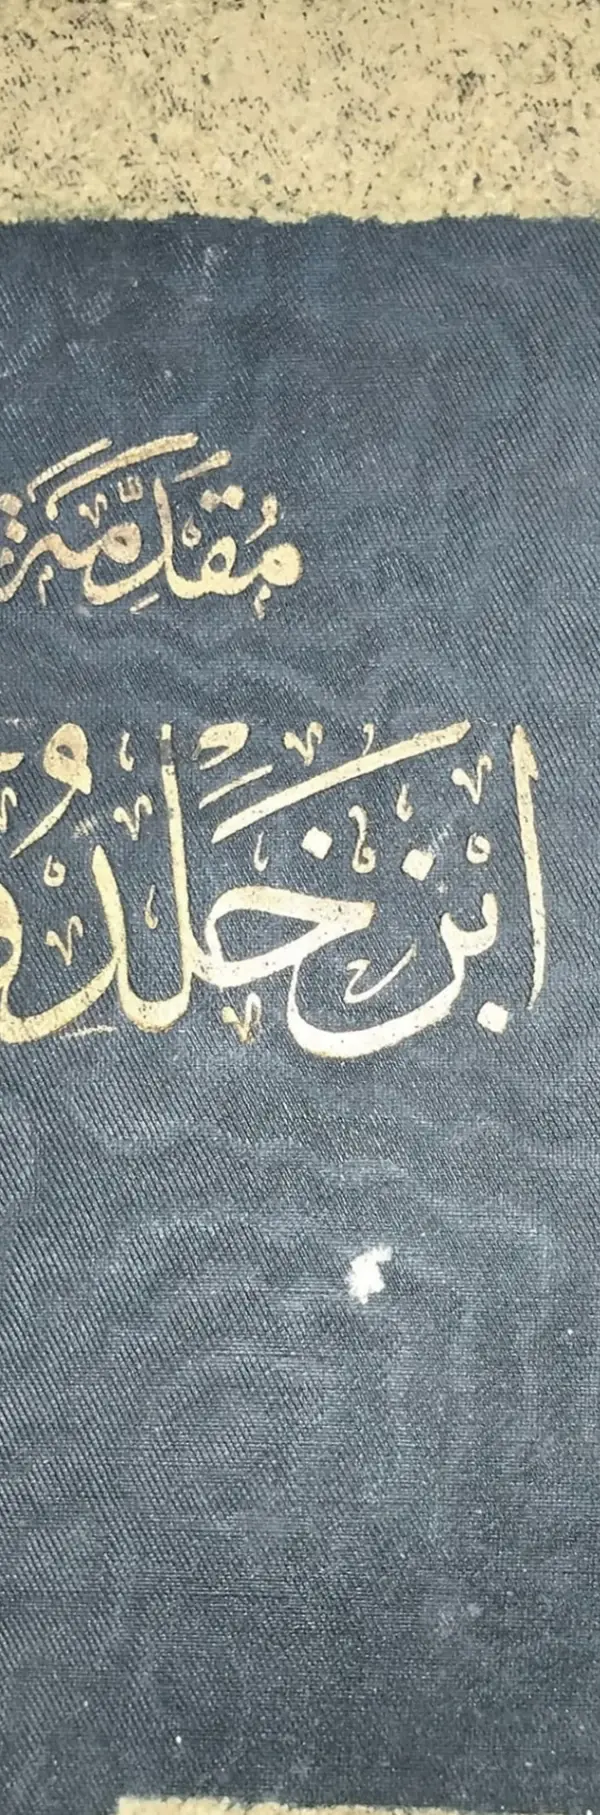 مُقَدِّمَة
ابْن خَلْدُو